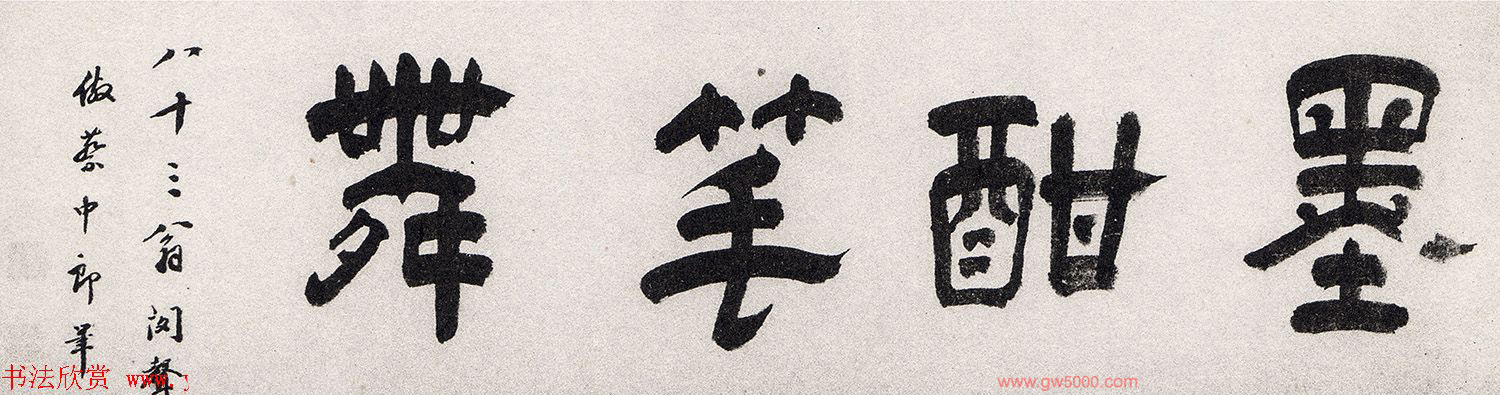 墨酣笔舞
八十三翁闵声
倣蔡中郎笔
书法欣赏 www.
www.gw5000.com